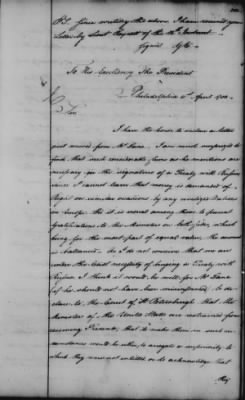 P.S. Since writing the above I have received your
Letter by Lieut.
Signed
To His Excellency The President
Philadelphia April
Sir
I have the honor to inclose a letter
just received from Mr Dana. I am much surprized to
find that such considerable sums as he mentions are
necessary for the signature of a Treaty with Russia
since I cannot learn that money is demanded of
on similar occasions by any
in Europe tho it is usual among them to present
Gratifications to the Ministers on both sides, which
being for the most part of equal value, the account
is balanced. As I do not conceive that we are
under the least necessity of buying a Treaty with
Russia I think it would be well for Mr Dana
if he should not have been misinformed, to de-
clare to the Court of St Petersburgh that the
Ministers of the United States are restrained from
receiving Presents, that to make them in such
circumstances would be either to arrogate a superiority to
which they were not entitled or to acknowledge that
they